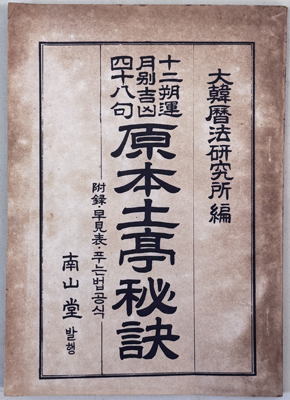 大韓曆法硏究所編
十二朔運
月别吉凶
四十八句
原本土亭秘訣
附錄·早見表·푸는법공식
南山堂 발행